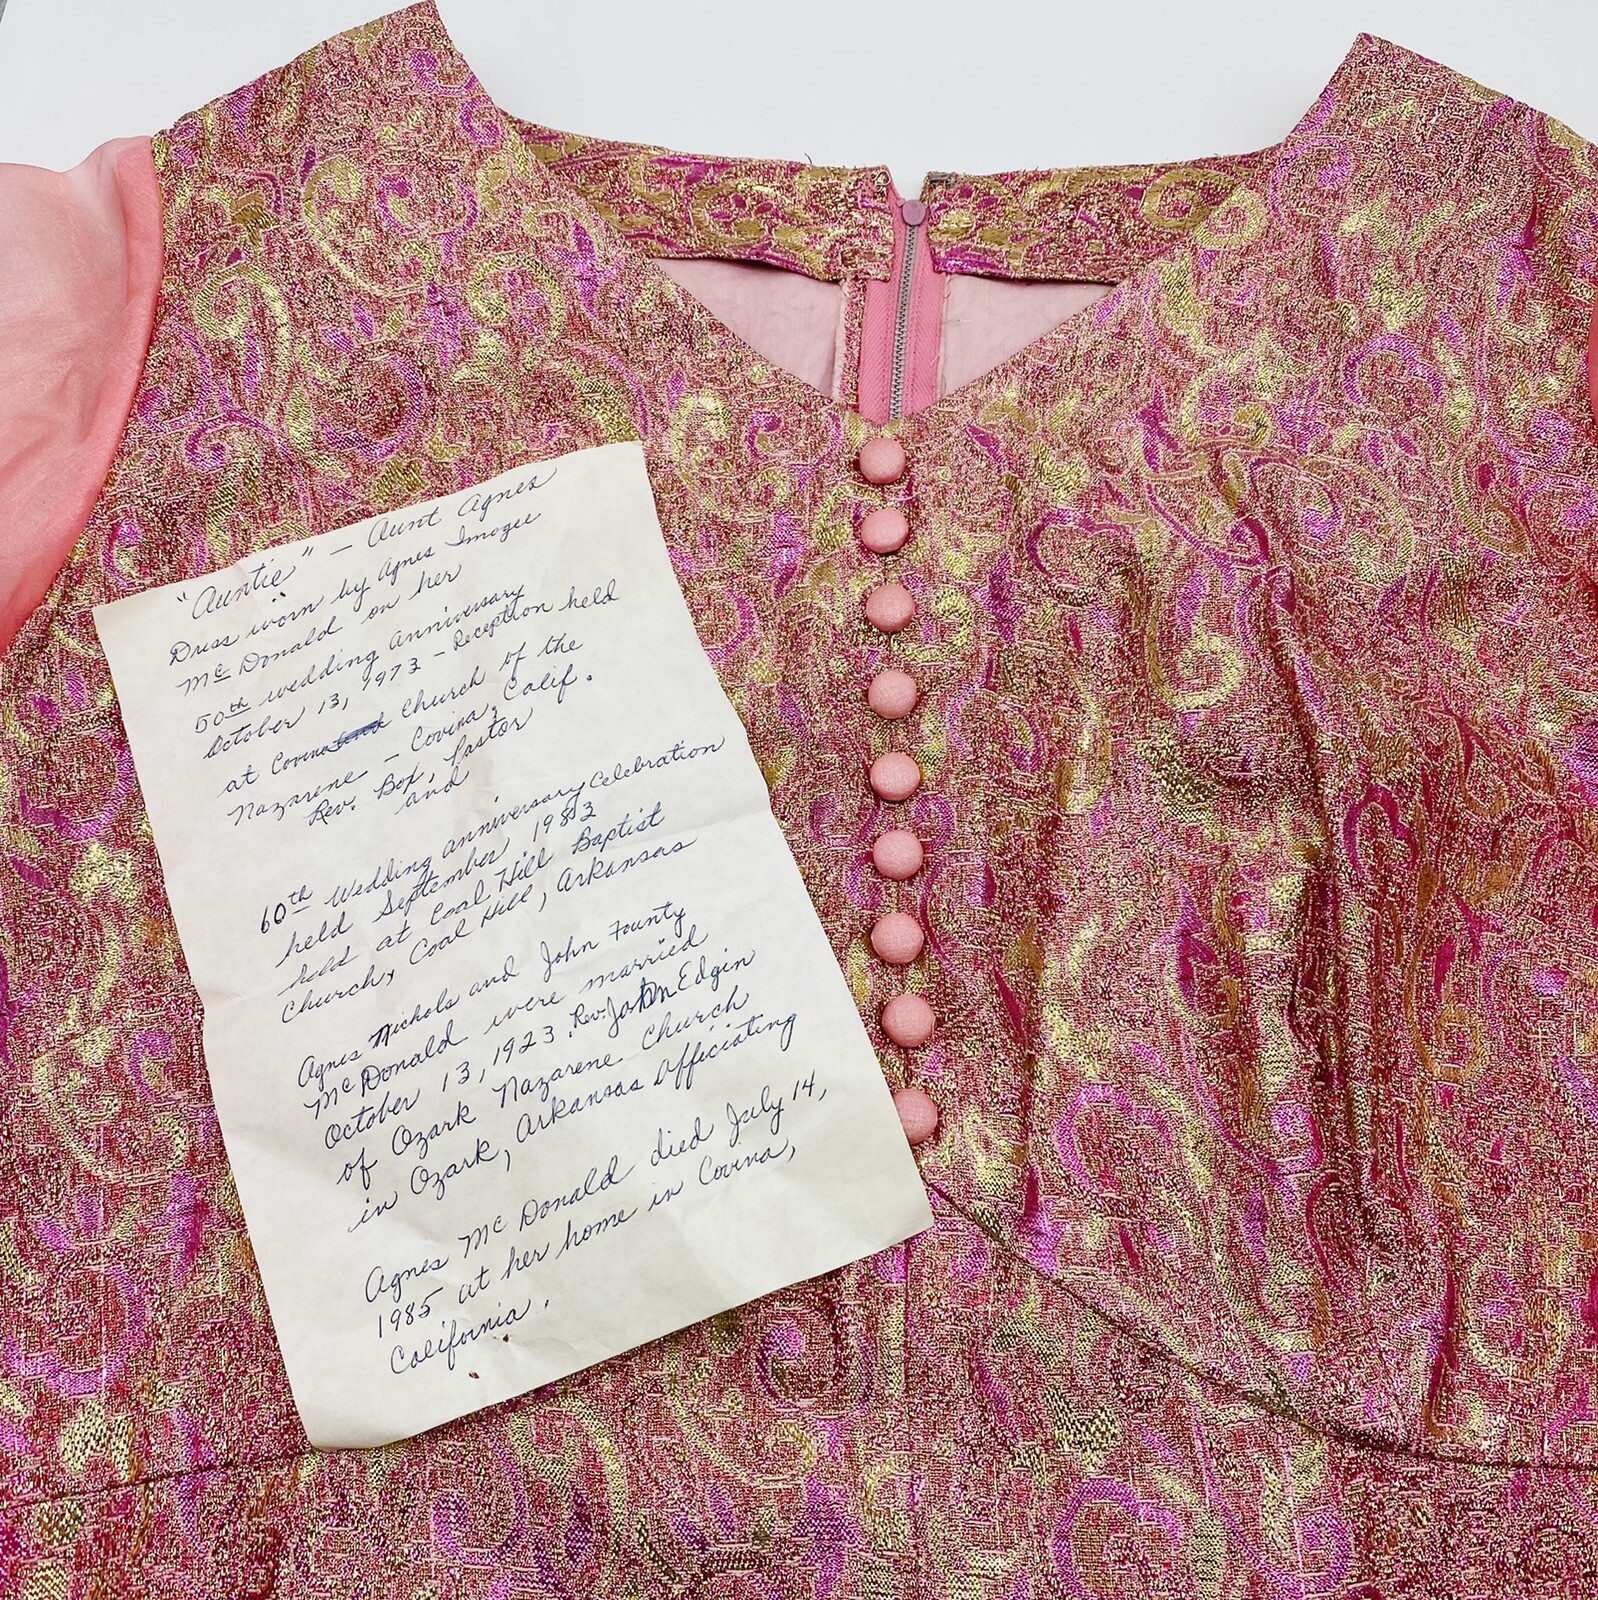 "Auntie" - Aunt Agnes
Dress worn by Agnes Imogee
McDonald on her
50th wedding anniversary
October 13, 1973 - Reception held
at Covina Church of the
Nazarene - Covina, Calif.
Rev. Box, Pastor
and
60th Wedding anniversary Celebration
held September, 1983
held at Coal Hill Baptist
Church, Coal Hill, Arkansas
Agnes Nichols and John Founty
McDonald were married
October 13, 1923. Rev. John Edgin
of Ozark Nazarene Church
in Ozark, Arkansas Officiating
Agnes McDonald died July 14,
1985 at her home in Covina,
California.